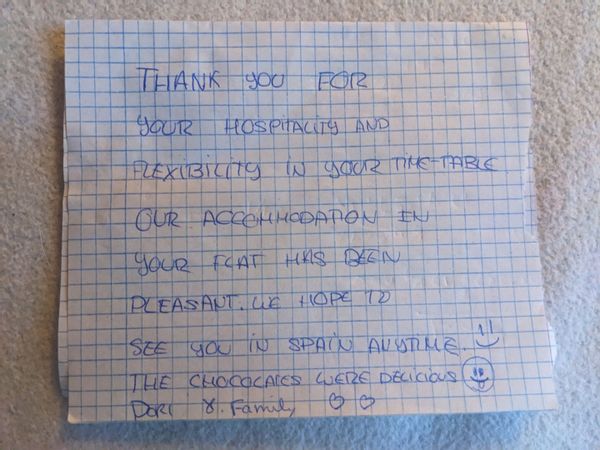 THANK YOU FOR
YOUR HOSPITALITY AND
FLEXIBILITY IN YOUR TIME-TABLE
OUR ACCOMMODATION IN
YOUR FLAT HAS BEEN
PLEASANT. WE HOPE TO
SEE YOU IN SPAIN ANYTIME.
THE CHOCOLATES WERE DELICIOUS
DORI & Family